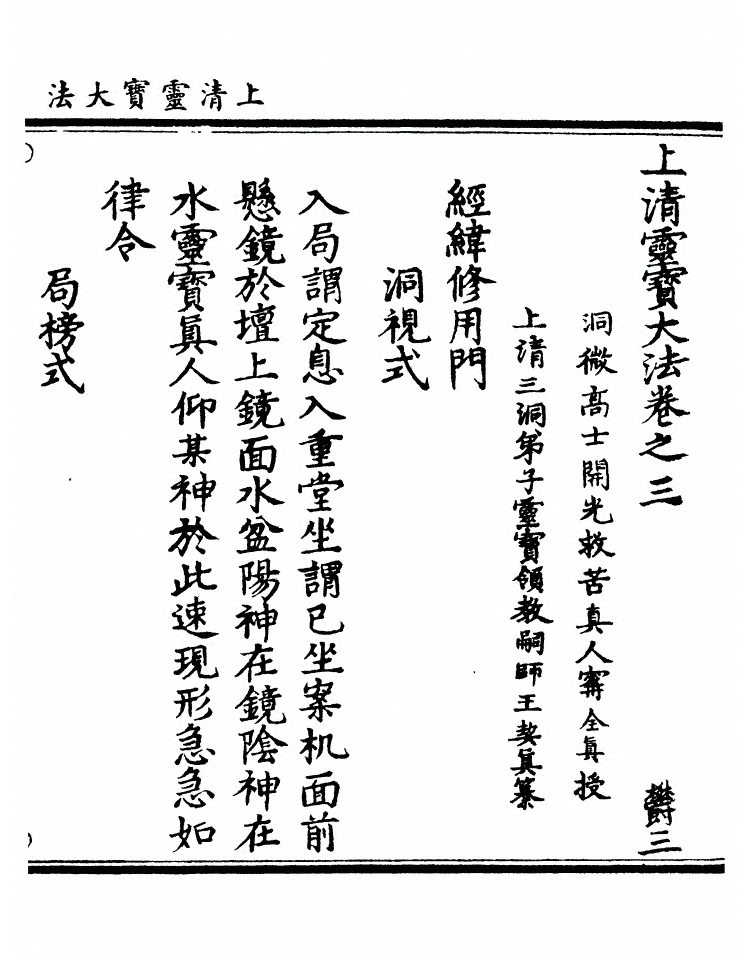 上清靈寶大法
上清靈寶大法卷之三
鬱三
洞微高士開光救苦真人甯全眞授
上清三洞弟子靈寶領教嗣師王契眞纂
經緯修用門
洞視式
入局謂定息入重堂坐謂已坐案机面前
懸鏡於壇上鏡面水盆陽神在鏡陰神在
水靈寶眞人仰某神於此速現形急急如
律令
局榜式